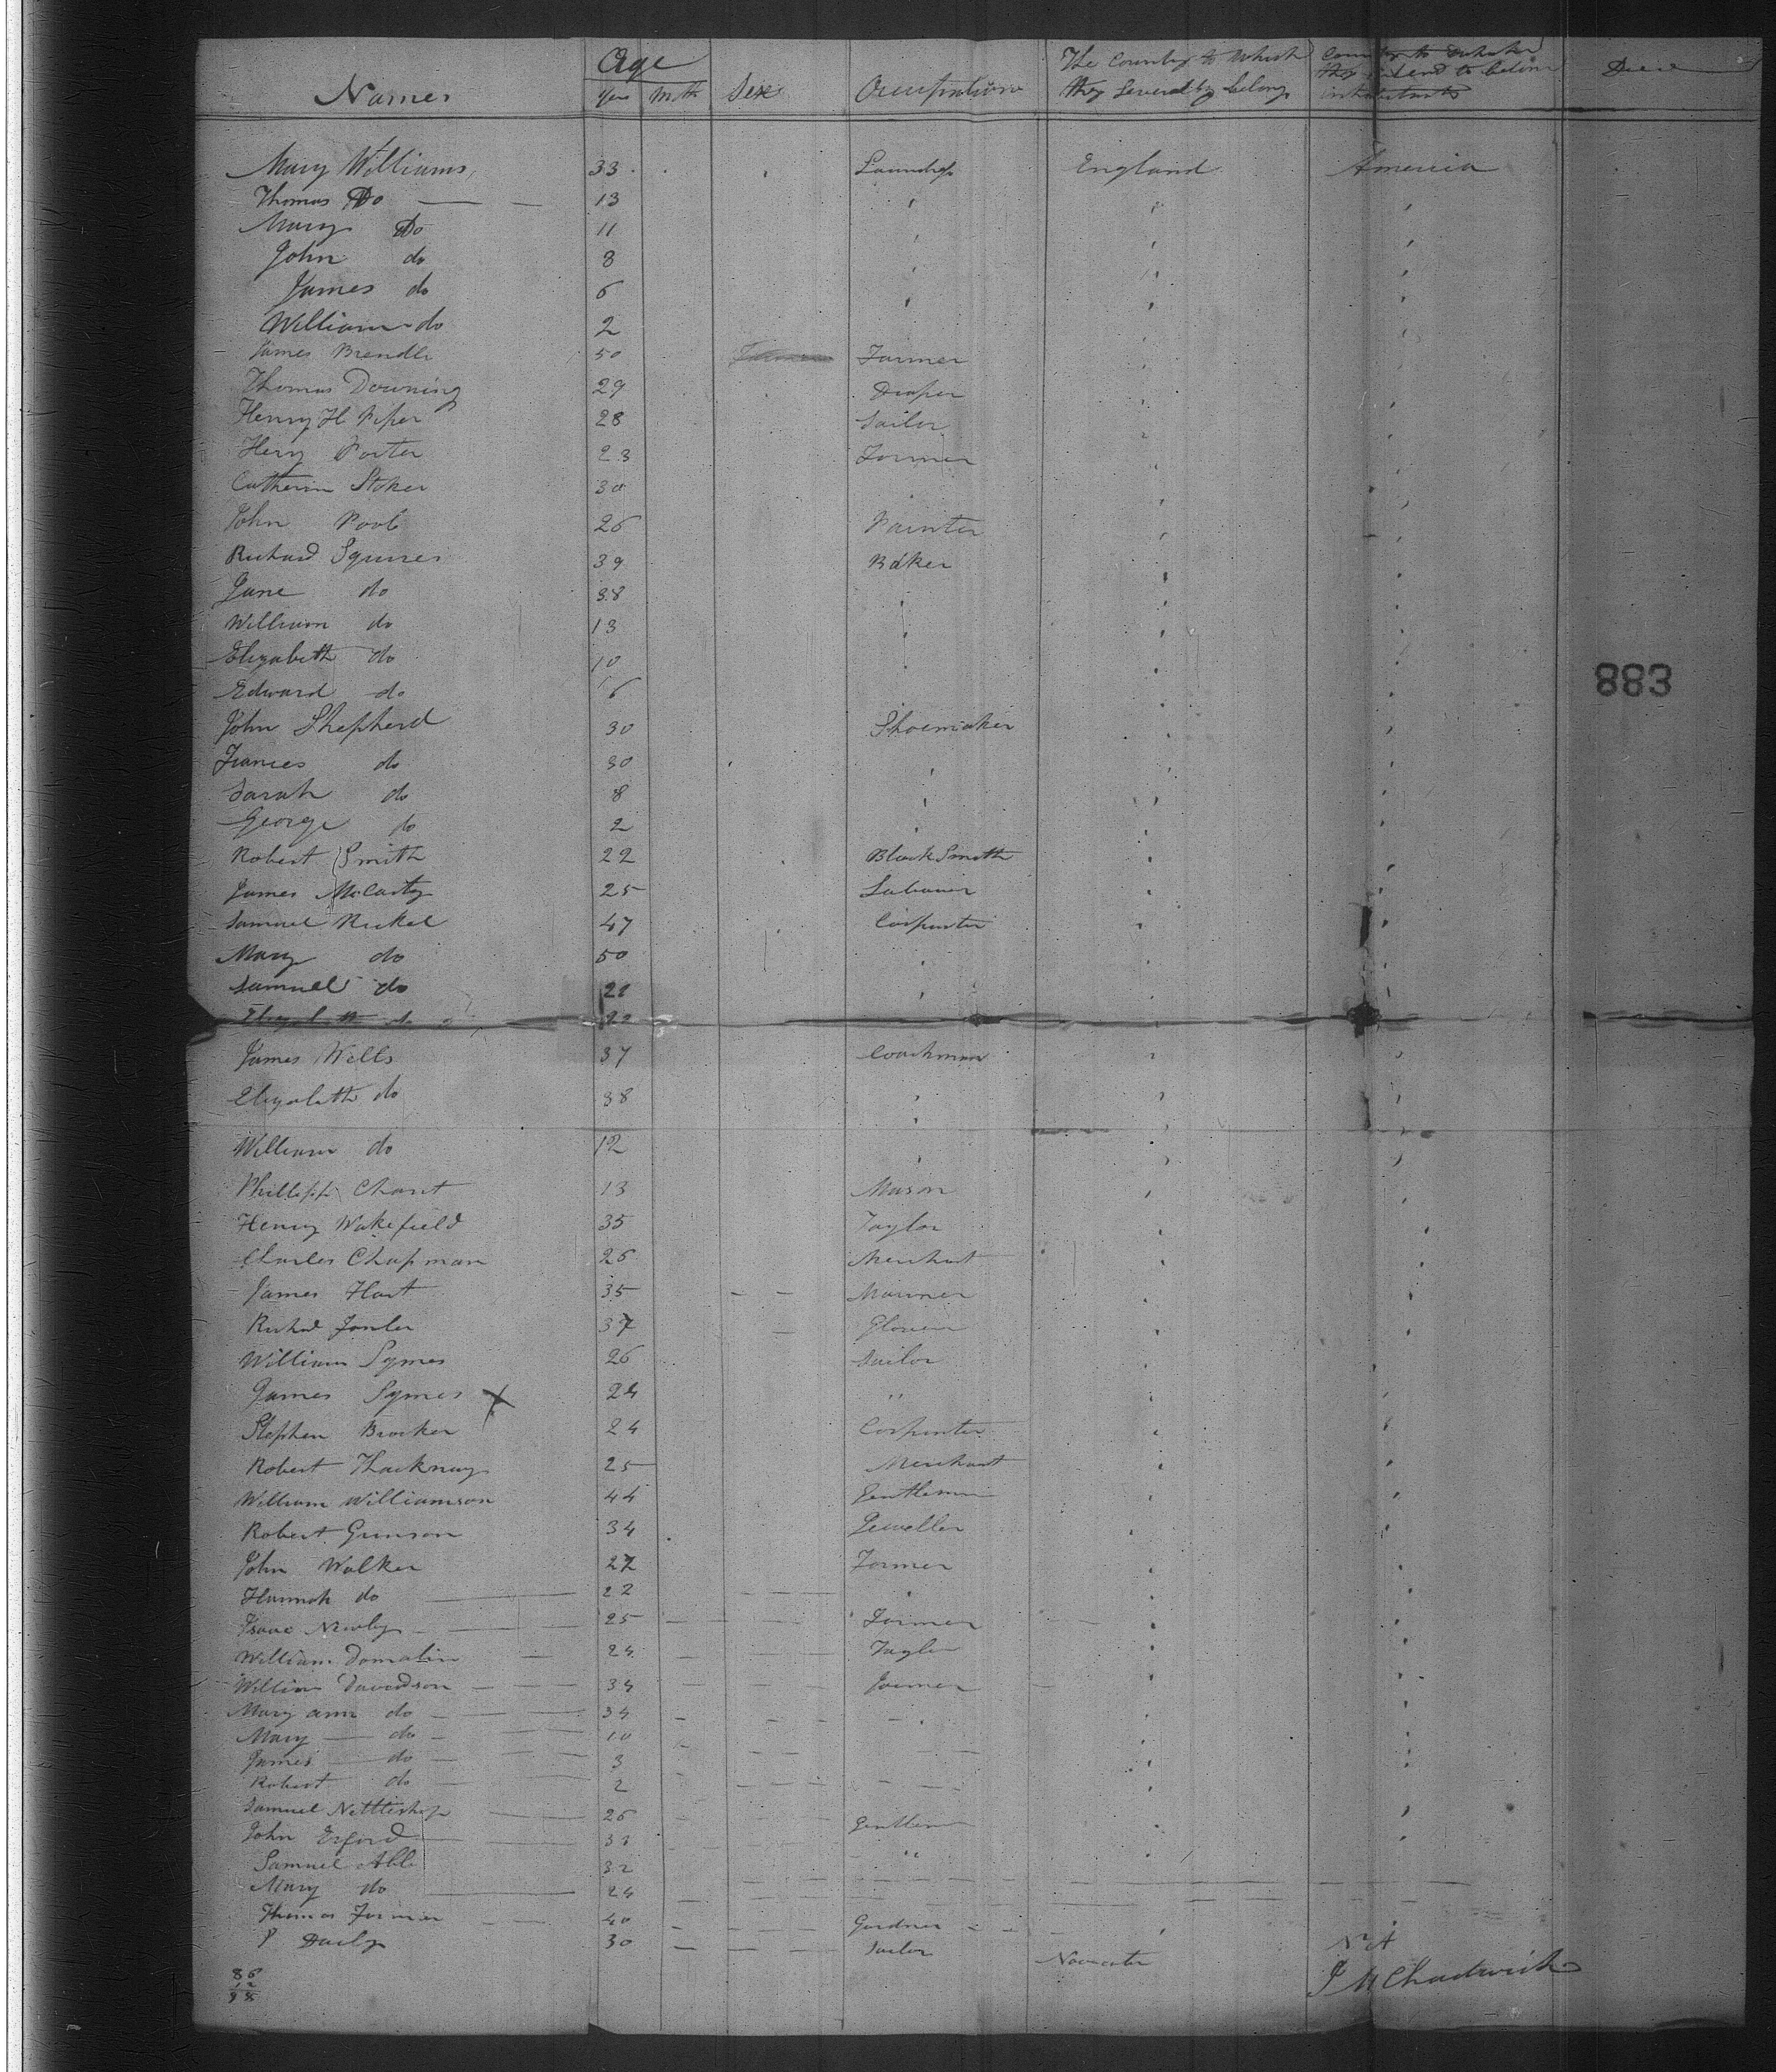 Names Age Sex Occupation The Country to Which they Severally belong Country to which they intend to become inhabitants Died
yrs mths
Mary Williams 33 Laundress England America
Thomas Do 13
Mary Do 11
John do 8
James do 6
William do 2
James Brendle 50 Farmer
Thomas Downing 29 Draper
Henry H Piper 28 Sailor
Hery Porter 23 Farmer
Catherin Stoker 30
John Poole 26 Painter
Richard Squires 39 Baker
Jane do 38
William do 13
Elizabeth do 10
Edward do 6
John Shepherd 30 Shoemaker
Frances do 30
Sarah do 8
George do 2
Robert Smith 22 Black Smith
James McCarty 25 Labourer
Samuel Nickel 47 Carpenter
Mary do 50
Samuel do 21
Elizabeth do 22
James Wells 37 Coachman
Elizabeth do 38
William do 12
Phillipp Chant 13 Mason
Henry Wakefield 35 Taylor
Charles Chapman 26 Merchant
James Hart 35 Mariner
Richd Fowler 37 Glover
William Symes 26 Sailor
James Symes X 24 "
Stephen Brooker 24 Carpenter
Robert Thackney 25 Merchant
William Williamson 44 Gentleman
Robert Gunson 34 Jeweller
John Walker 27 Farmer
Hannah do 22
Isaac Newby 25 Farmer
William Domalin 24 Taylor
William Davidson 34 Farmer
Mary ann do 34
Mary do 10
James do 3
Robert do 2
Samuel Nettleship 26 Gentleman
John Exford 33 "
Samuel Able 32
Mary do 24
Thomas Farmer 40 Gardner
P Daily 30 Sailor N A
J M Chadwick
86
12
98
883